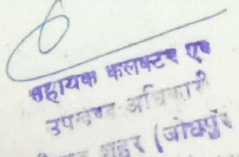 सहायक कलक्टर एव
उपखण्ड अधिकारी
शहर (जोधपुर